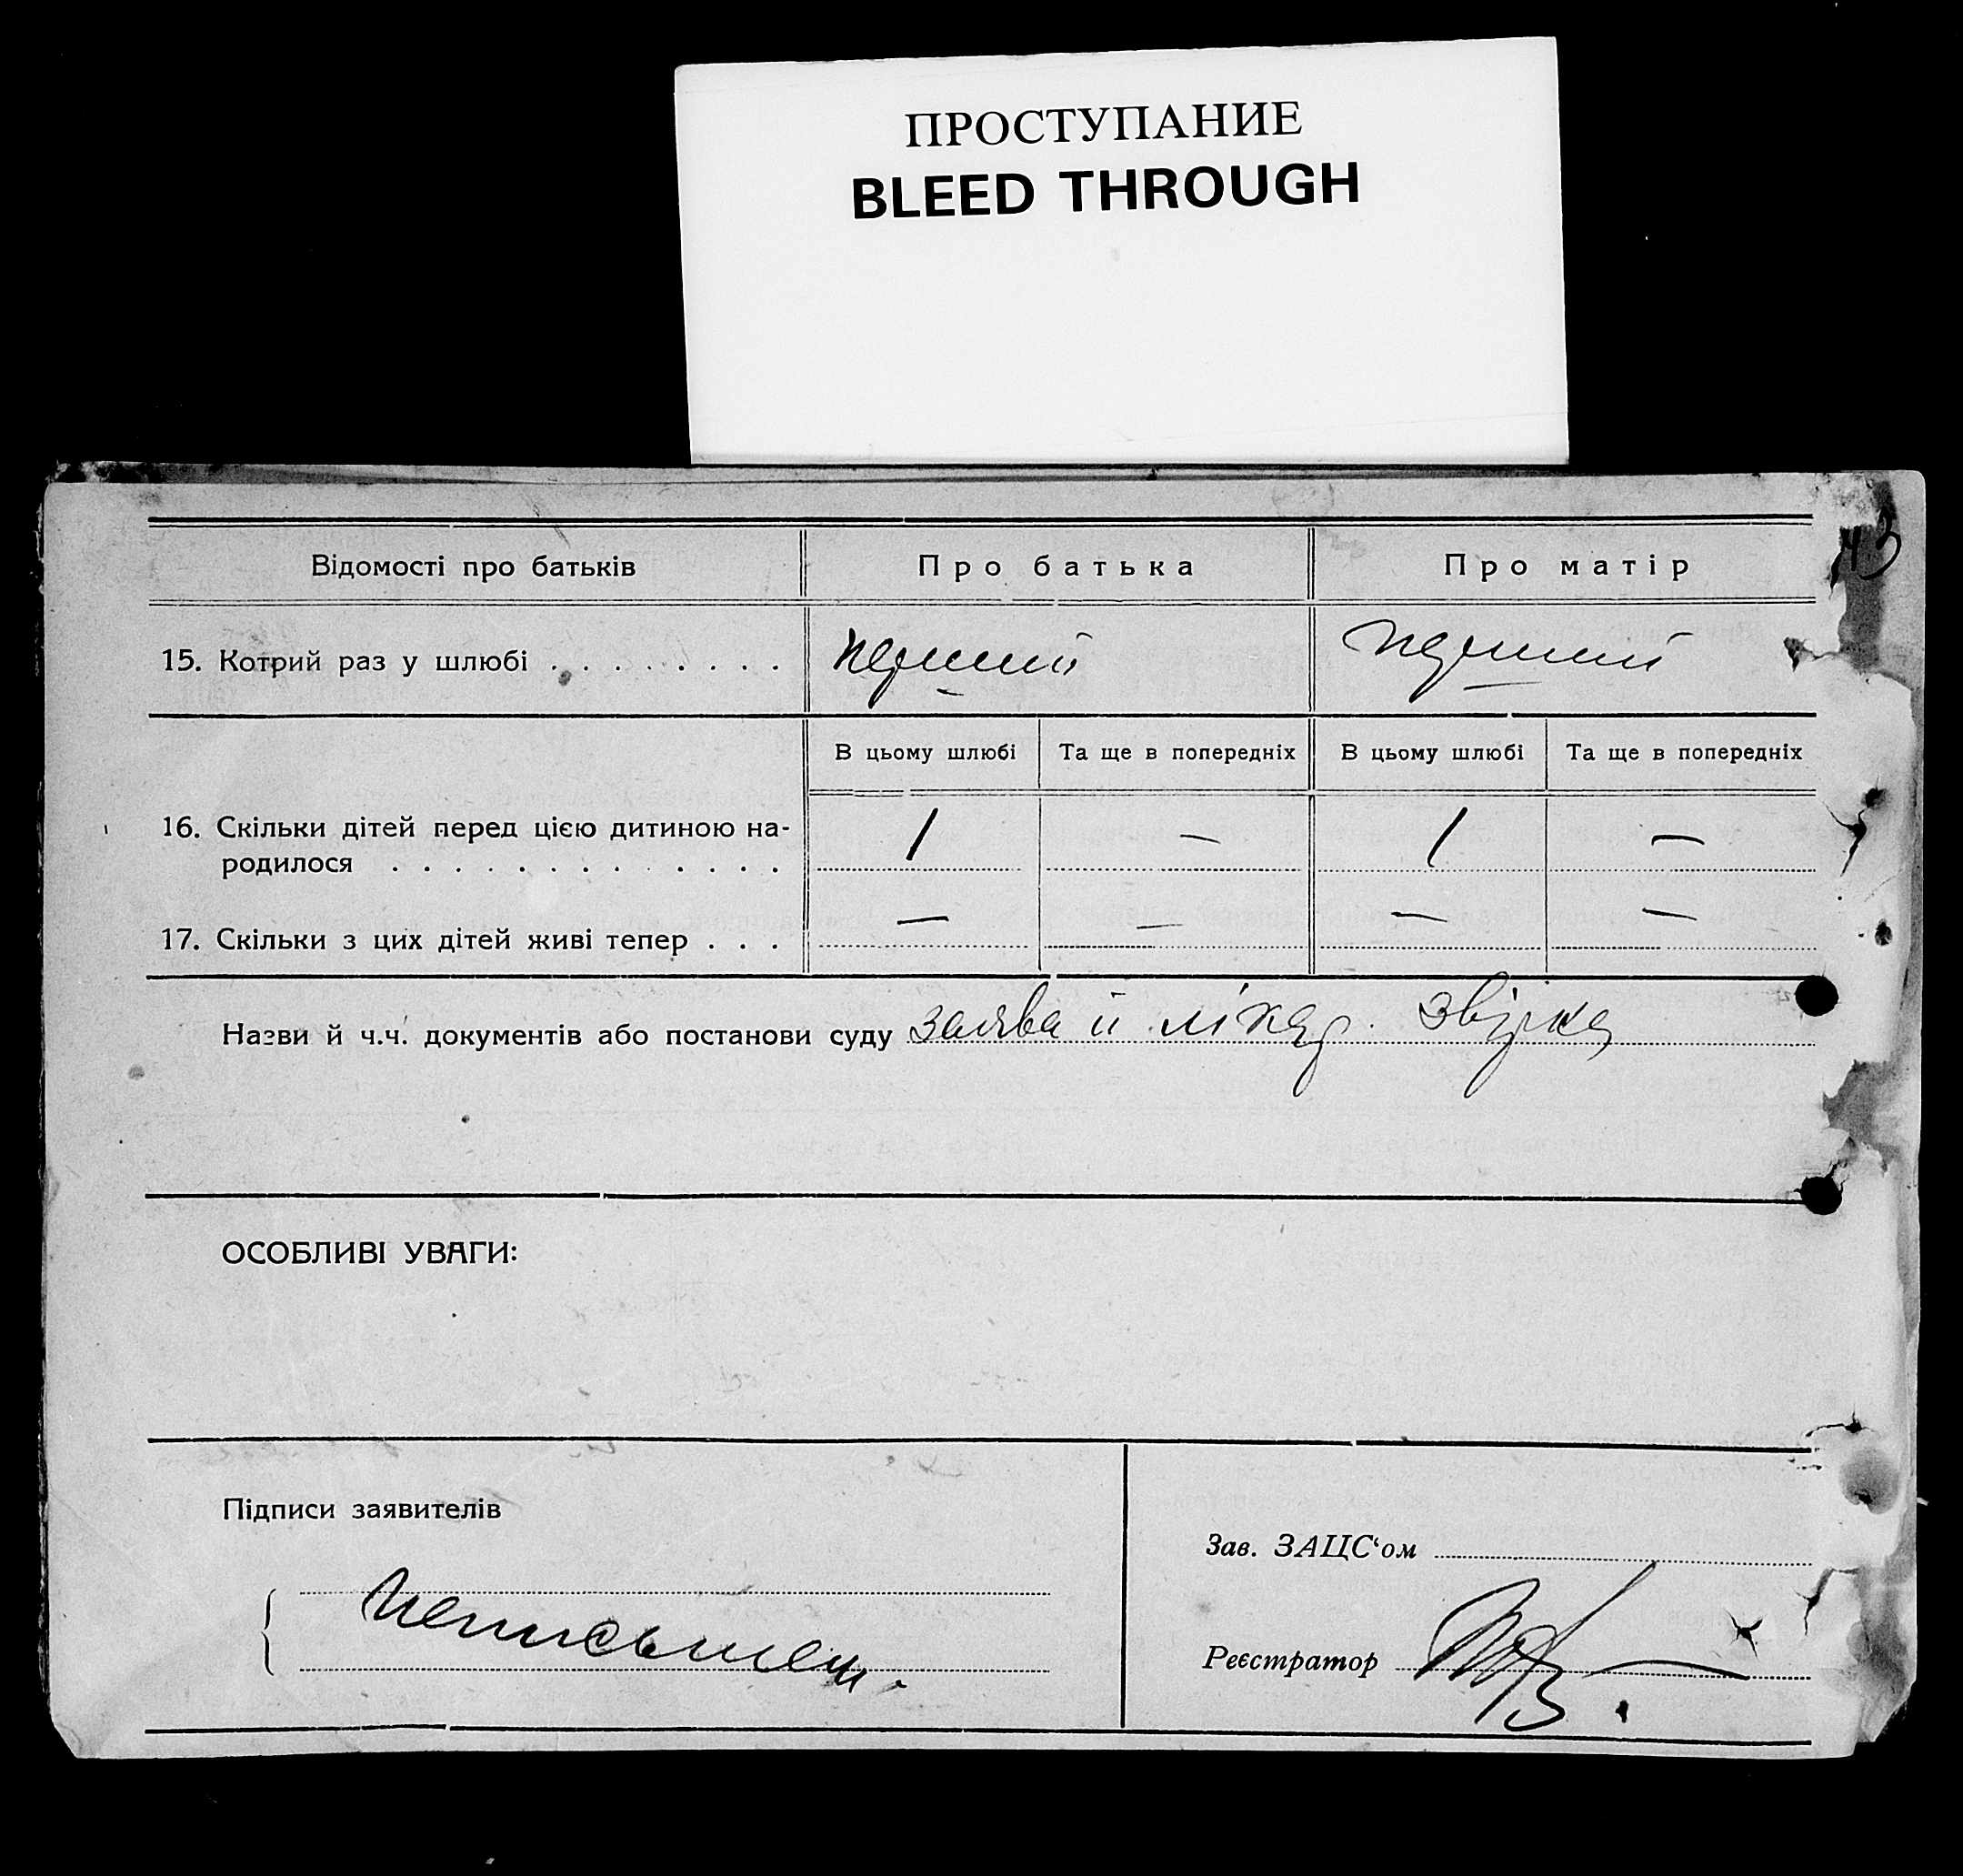 ПРОСТУПАНИЕ
BLEED THROUGH
43
Відомості про батьків Про батька Про матір
15. Котрий раз у шлюбі . . . . . . . . перший перший
В цьому шлюбі Та ще в попередніх В цьому шлюбі Та ще в попередніх
16. Скільки дітей перед цією дитиною на-
родилося . . . . . . . . . . . . . 1 — 1 —
17. Скільки з цих дітей живі тепер . . . — — — —
Назви й ч.ч. документів або постанови суду заява й лікар. звірка
ОСОБЛИВІ УВАГИ:
Підписи заявителів
Зав. ЗАЦС‘ом
неписьмен.
Реєстратор